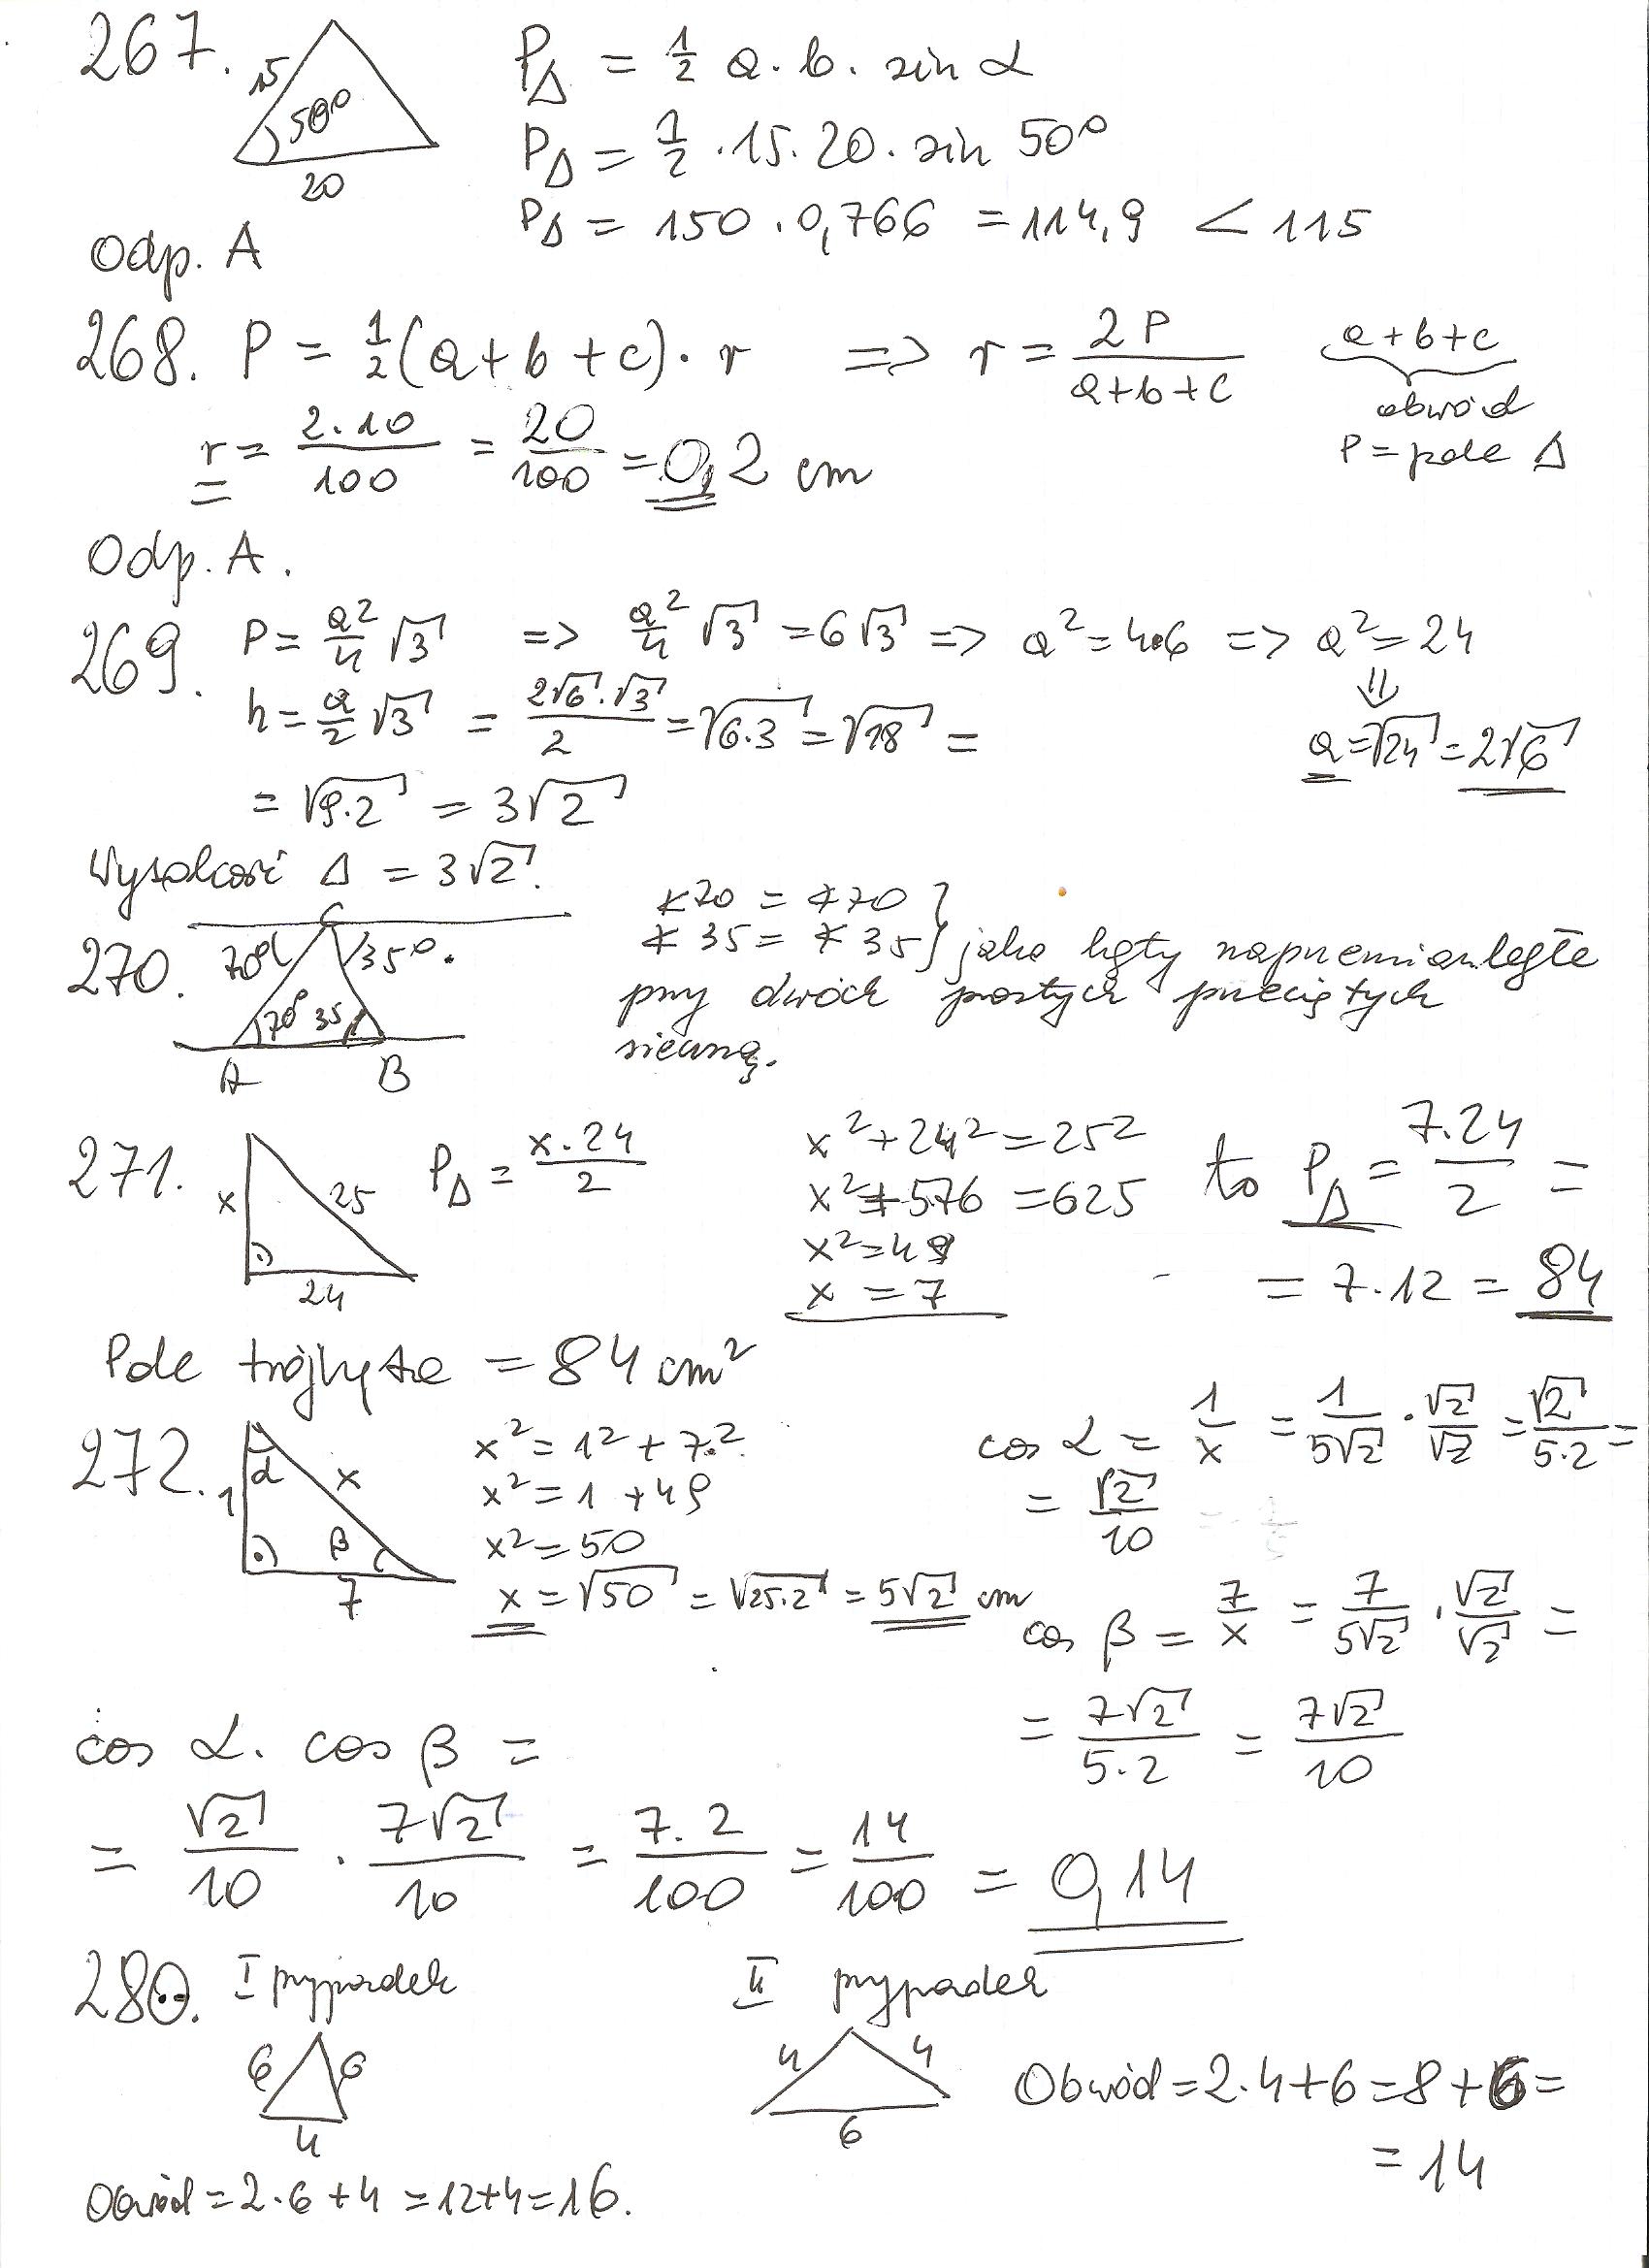 267. 15 50° 20
P△ = 1/2 a · b · sin α
P△ = 1/2 · 15 · 20 · sin 50°
P△ = 150 · 0,766 = 114,9 < 115
Odp. A
268. P = 1/2 (a + b + c) · r => r = 2P/(a+b+c)
a+b+c
obwód
P = pole △
r = 2·10/100 = 20/100 = 0,2 cm
Odp. A.
269. P = a²/4 √3 => a²/4 √3 = 6√3 => a² = 4·6 => a² = 24
⇓
a = √24 = 2√6
h = a/2 √3 = 2√6·√3/2 = √6·3 = √18 =
= √9·2 = 3√2
Wysokość △ = 3√2.
270. C 70° 35° 70° 35 A B
∢70 = ∢70 }
∢35 = ∢35 } jako kąty naprzemianległe
przy dwóch prostych przeciętych
sieczną.
271. x 25 24
P△ = x·24/2
x² + 24² = 25²
x² + 576 = 625
x² = 49
x = 7
to P△ = 7·24/2 =
= 7·12 = 84
Pole trójkąta = 84 cm²
272. 1 α x β 7
x² = 1² + 7²
x² = 1 + 49
x² = 50
x = √50 = √25·2 = 5√2 cm
cos α = 1/x = 1/5√2 · √2/√2 = √2/5·2 =
= √2/10
cos β = 7/x = 7/5√2 · √2/√2 =
= 7√2/5·2 = 7√2/10
cos α · cos β =
= √2/10 · 7√2/10 = 7·2/100 = 14/100 = 0,14
280. I przypadek
6 6 4
Obwód = 2·6 + 4 = 12+4 = 16.
II przypadek
4 4 6
Obwód = 2·4+6 = 8+6 =
= 14